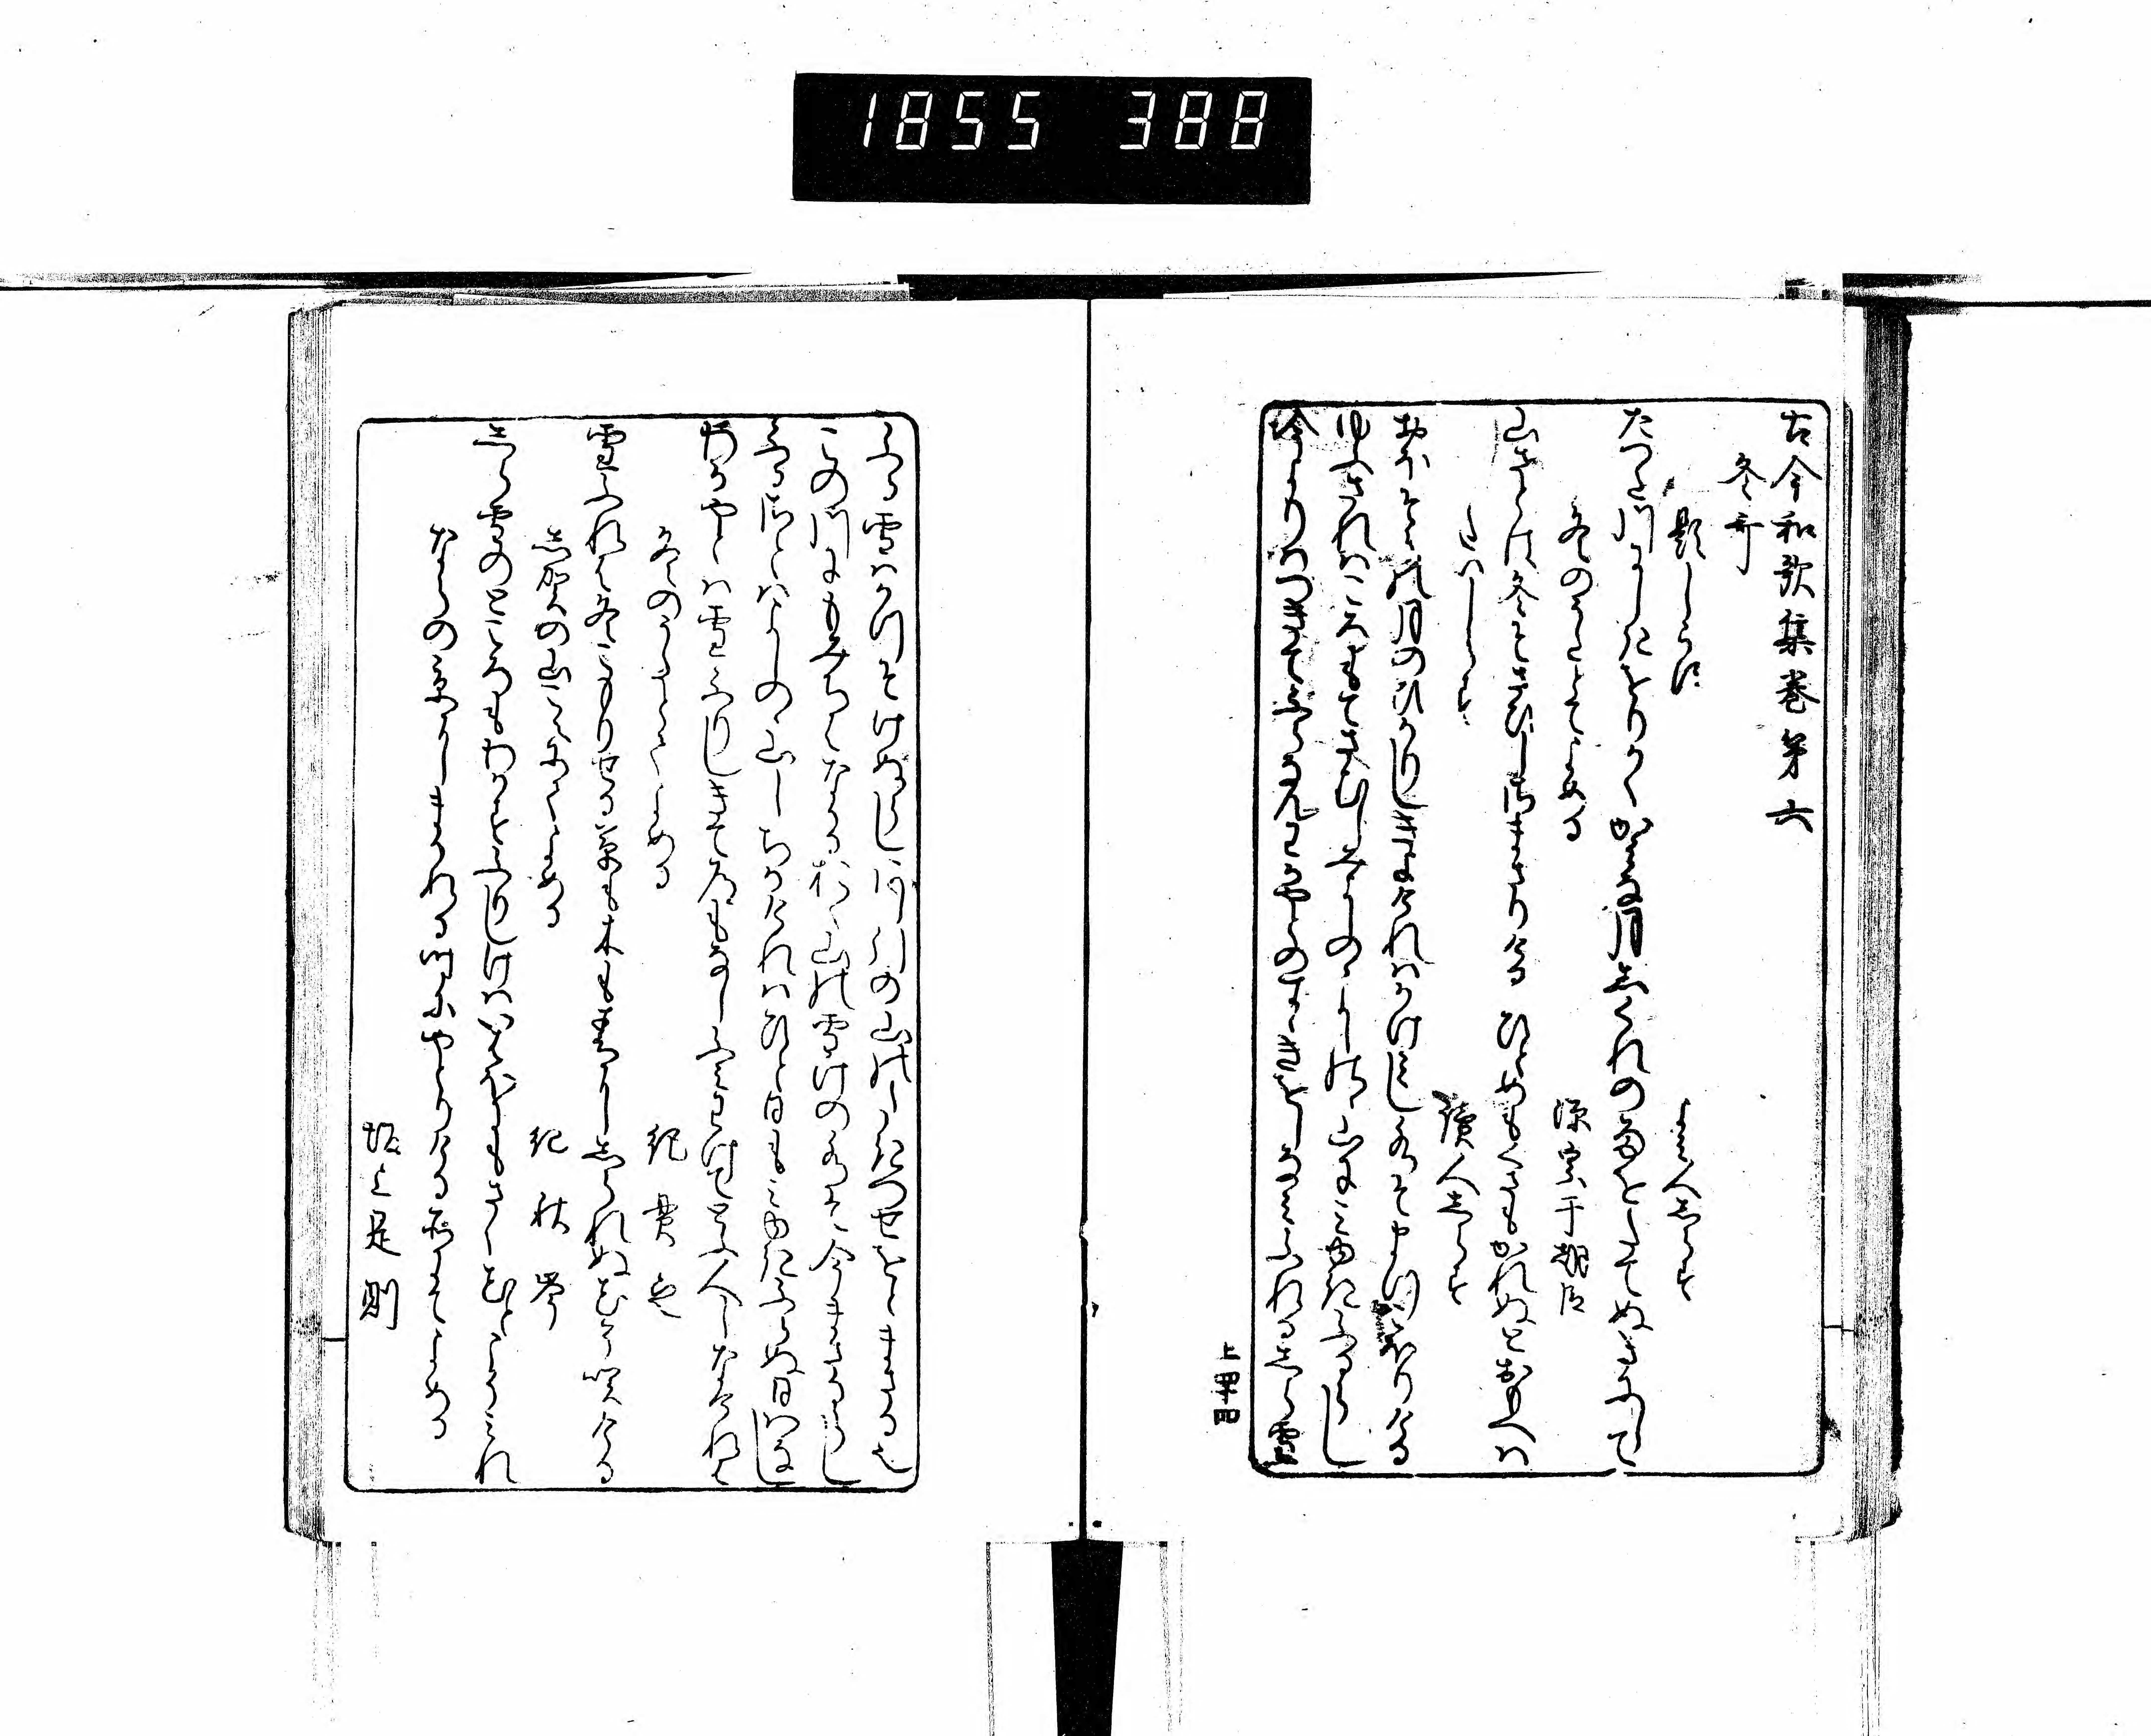 1855 388
古今和歌集巻第六
冬哥
題しらす
よみ人しらす
たつた川にしきをりかく神な月しくれの雨をたてぬきにして
冬のうたとてよめる
源宗于朝臣
山さとは冬そさひしさまさりける ひとめも草もかれぬとおもへは
題しらす
讀人しらす
おほそらの月のひかりしきよけれはかけ見し水そまつこほりける
ゆふされはころもてさむしみよしのゝよしのゝ山にみ雪ふるらし
今よりはつきてふらなんわかやとのすゝきをしなみふれるしら雪
上四十四
ふる雪はかつそけぬらしあし引の山のたきつせをとまさる也
この川にもみちはなかるおく山の雪けの水そ今まさるらし
ふるさとはよしのゝ山しちかけれはひと日もみ雪ふらぬ日はなし
わかやとは雪ふりしきて道もなしふみわけてとふ人しなけれは
冬のうたとてよめる
紀貫之
雪ふれは冬こもりせる草も木も春にしられぬ花そ咲ける
志賀の山こえにてよめる
紀秋岑
しら雪のところもわかすふりしけはいはほにもさく花とこそみれ
ならの京にまかれる時にやとれりける所にてよめる
坂上是則